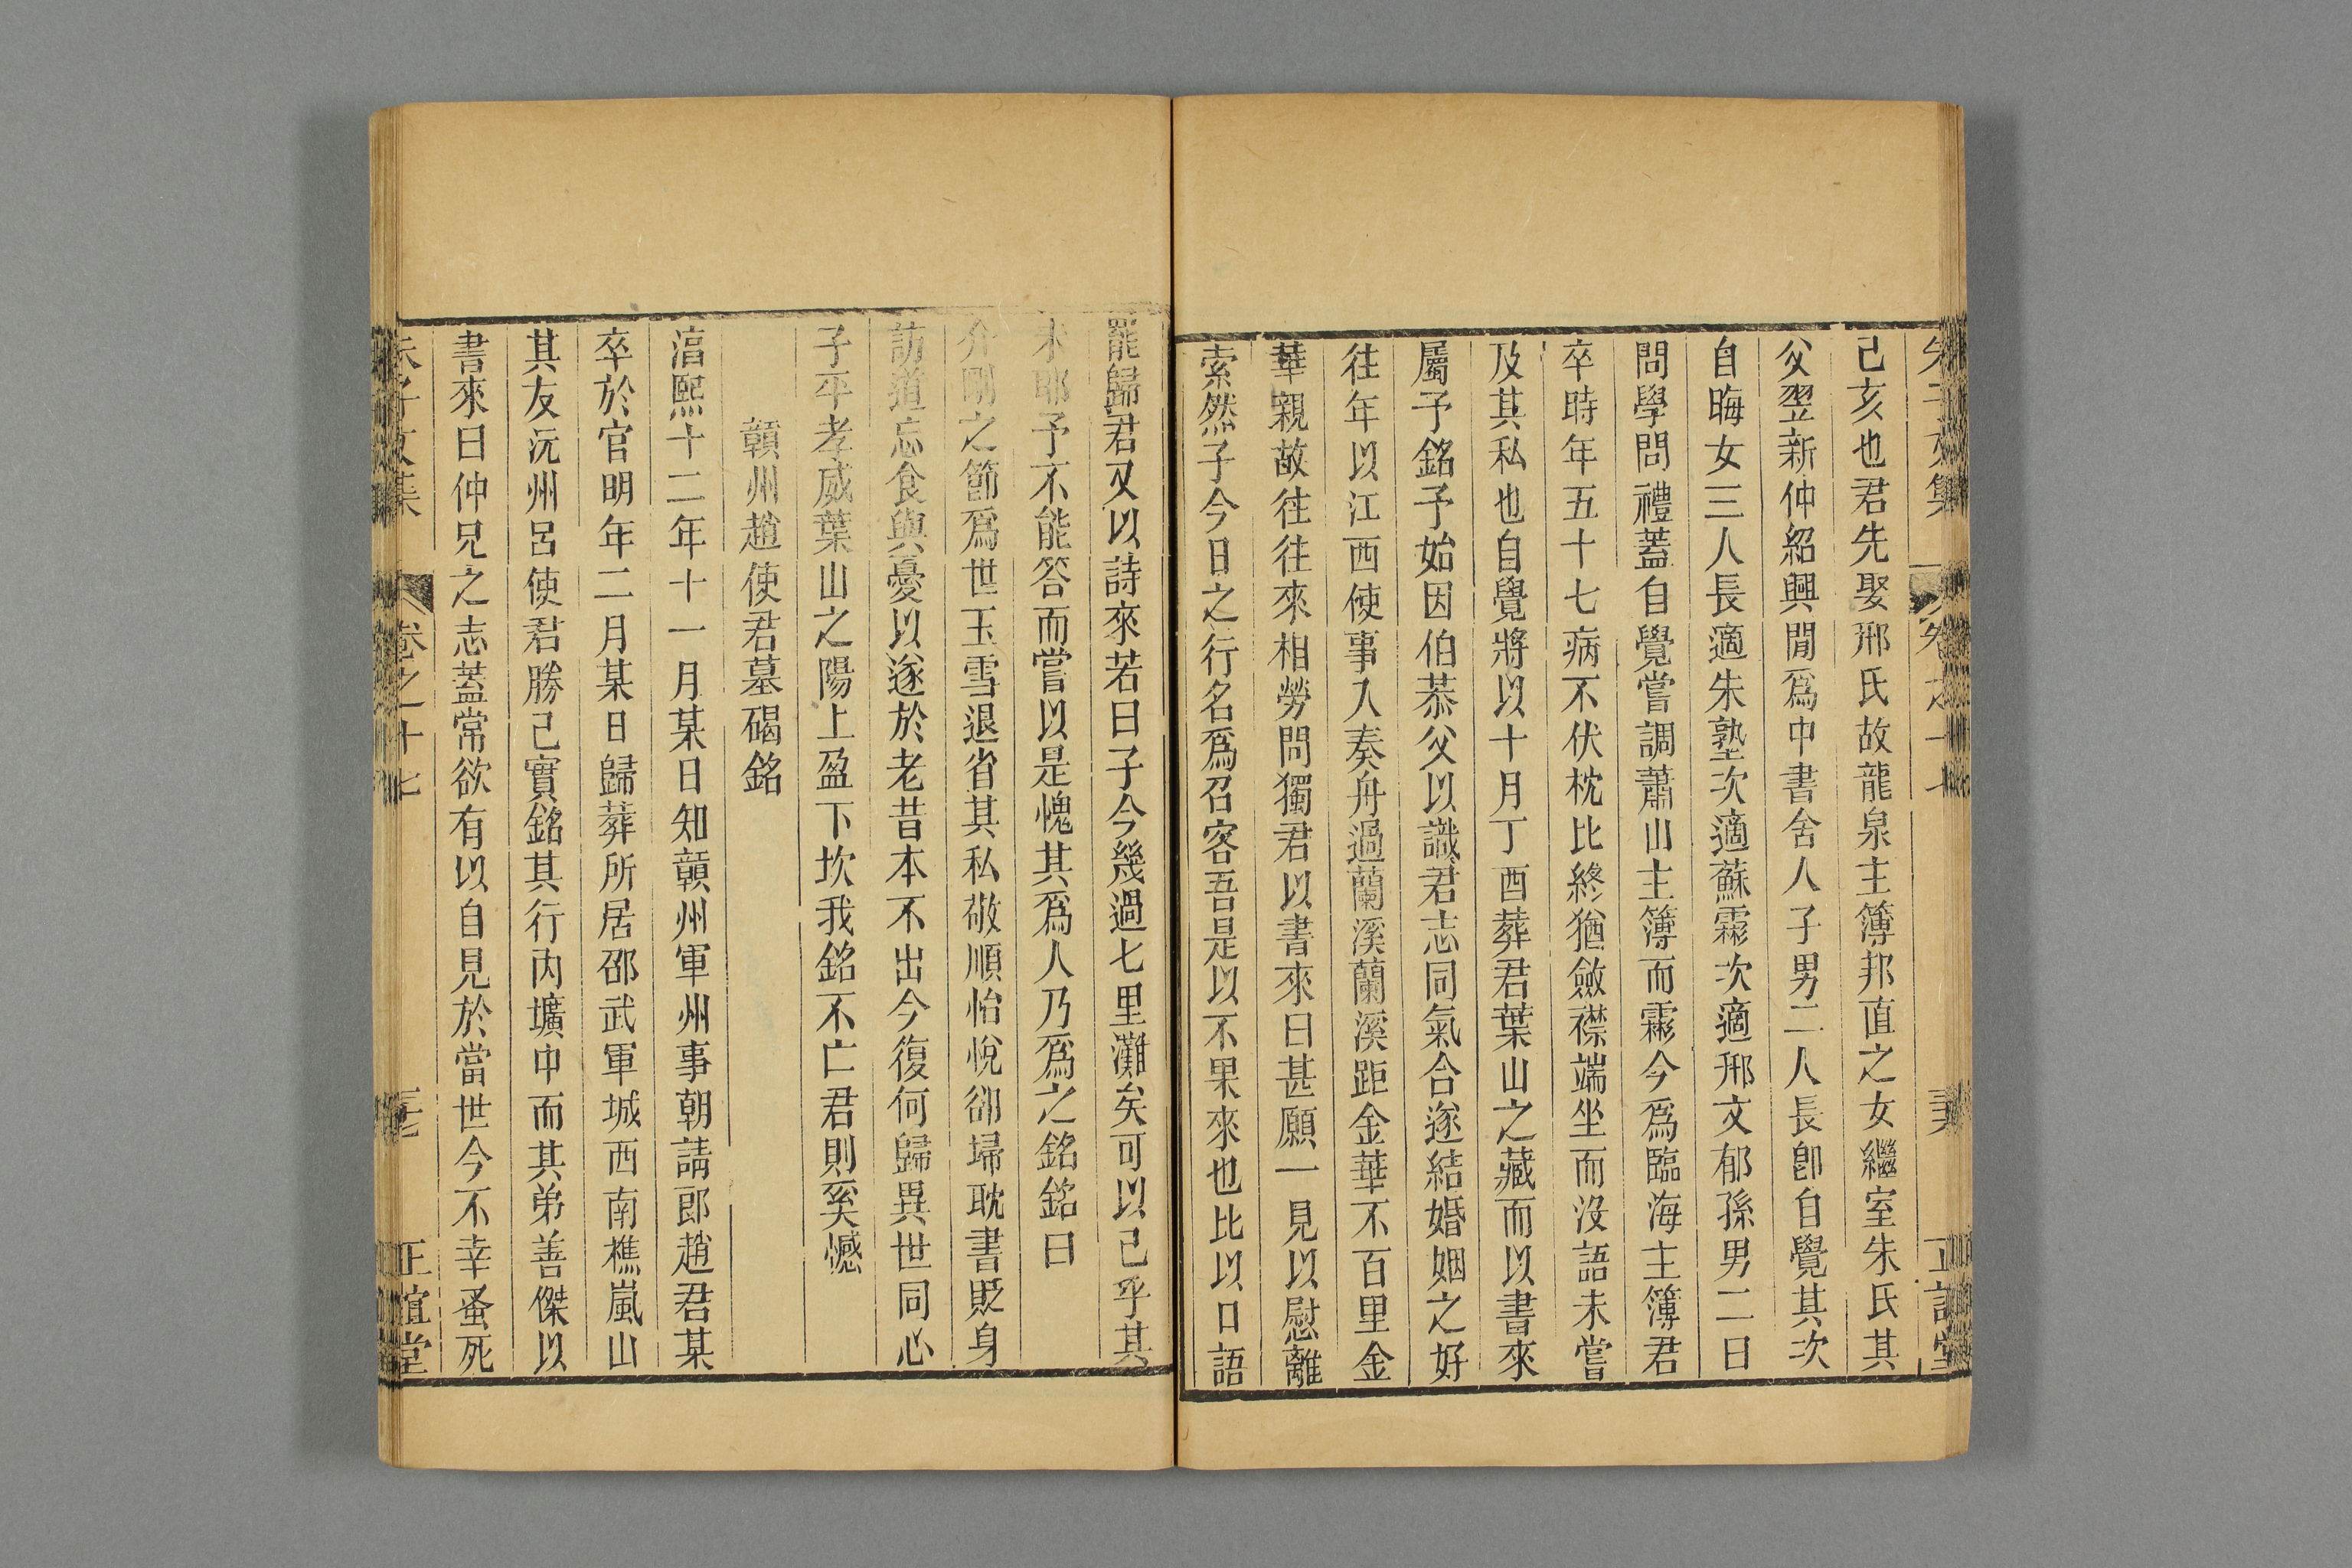 朱子文集 卷之十七 正誼堂
己亥也君先娶邢氏故龍泉主簿邦直之女繼室朱氏其
父翌新仲紹興閒爲中書舍人子男二人長卽自覺其次
自晦女三人長適朱塾次適蘇霖次適邢文郁孫男二曰
問學問禮蓋自覺嘗調蕭山主簿而霖今爲臨海主簿君
卒時年五十七病不伏枕比終猶斂襟端坐而沒語未嘗
及其私也自覺將以十月丁酉葬君葉山之藏而以書來
屬予銘予始因伯恭父以識君志同氣合遂結婚姻之好
往年以江西使事入奏舟過蘭溪蘭溪距金華不百里金
華親故往往來相勞問獨君以書來曰甚願一見以慰離
索然子今日之行名爲召客吾是以不果來也比以口語
罷歸君又以詩來若曰子今幾過七里灘矣可以已乎其
未耶予不能答而嘗以是愧其爲人乃爲之銘銘曰
介剛之節爲世玉雪退省其私敬順怡悅卻埽耽書貶身
訪道忘食與憂以遂於老昔本不出今復何歸異世同心
子平孝威葉山之陽上盈下坎我銘不亡君則奚憾
贛州趙使君墓碣銘
淳熙十二年十一月某日知贛州軍州事朝請郎趙君某
卒於官明年二月某日歸葬所居邵武軍城西南樵嵐山
其友沅州呂使君勝己實銘其行內壙中而其弟善傑以
書來曰仲兄之志蓋常欲有以自見於當世今不幸蚤死
朱子文集 卷之十七 正誼堂